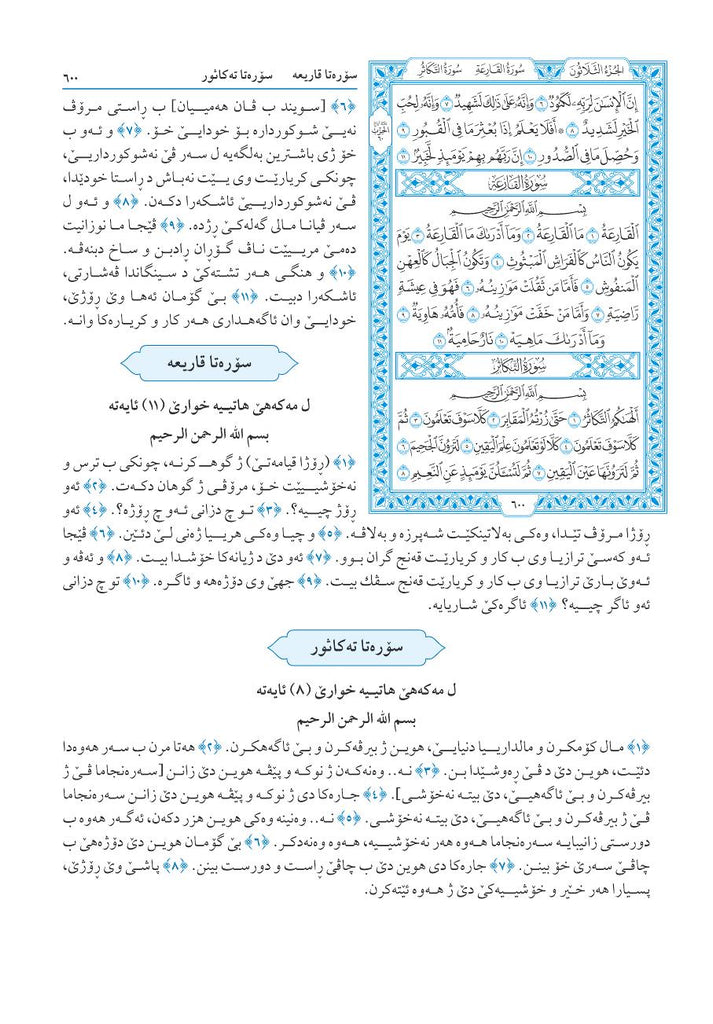 سۆرەتا قاریعە    سۆرەتا تەکاثور
٦٠٠
الجُزءُ الثَّلَاثُونَ    سُورَةُ القَارِعَةِ    سُورَةُ التَّكَاثُرِ
إِنَّ ٱلْإِنسَٰنَ لِرَبِّهِۦ لَكَنُودٌ ٦ وَإِنَّهُۥ عَلَىٰ ذَٰلِكَ لَشَهِيدٌ ٧ وَإِنَّهُۥ لِحُبِّ
ٱلْخَيْرِ لَشَدِيدٌ ٨ ۞ أَفَلَا يَعْلَمُ إِذَا بُعْثِرَ مَا فِي ٱلْقُبُورِ ٩
وَحُصِّلَ مَا فِي ٱلصُّدُورِ ١٠ إِنَّ رَبَّهُم بِهِمْ يَوْمَئِذٍ لَّخَبِيرٌۢ ١١
سُورَةُ القَارِعَةِ
بِسْمِ ٱللَّهِ ٱلرَّحْمَٰنِ ٱلرَّحِيمِ
ٱلْقَارِعَةُ ١ مَا ٱلْقَارِعَةُ ٢ وَمَآ أَدْرَىٰكَ مَا ٱلْقَارِعَةُ ٣ يَوْمَ
يَكُونُ ٱلنَّاسُ كَٱلْفَرَاشِ ٱلْمَبْثُوثِ ٤ وَتَكُونُ ٱلْجِبَالُ كَٱلْعِهْنِ
ٱلْمَنفُوشِ ٥ فَأَمَّا مَن ثَقُلَتْ مَوَٰزِينُهُۥ ٦ فَهُوَ فِي عِيشَةٍ
رَّاضِيَةٍ ٧ وَأَمَّا مَنْ خَفَّتْ مَوَٰزِينُهُۥ ٨ فَأُمُّهُۥ هَاوِيَةٌ ٩
وَمَآ أَدْرَىٰكَ مَا هِيَهْ ١٠ نَارٌ حَامِيَةٌۢ ١١
سُورَةُ التَّكَاثُرِ
بِسْمِ ٱللَّهِ ٱلرَّحْمَٰنِ ٱلرَّحِيمِ
أَلْهَىٰكُمُ ٱلتَّكَاثُرُ ١ حَتَّىٰ زُرْتُمُ ٱلْمَقَابِرَ ٢ كَلَّا سَوْفَ تَعْلَمُونَ ٣ ثُمَّ
كَلَّا سَوْفَ تَعْلَمُونَ ٤ كَلَّا لَوْ تَعْلَمُونَ عِلْمَ ٱلْيَقِينِ ٥ لَتَرَوُنَّ ٱلْجَحِيمَ ٦
ثُمَّ لَتَرَوُنَّهَا عَيْنَ ٱلْيَقِينِ ٧ ثُمَّ لَتُسْـَٔلُنَّ يَوْمَئِذٍ عَنِ ٱلنَّعِيمِ ٨
٦٠٠
﴿٦﴾ [سویند ب ڤان هەمییان] ب ڕاستی مرۆڤ
نەیێ شوکوردارە بۆ خودایێ خۆ. ﴿٧﴾ و ئەو ب
خۆ ژی باشترین بەلگەیە ل سەر ڤێ نەشوکورداریێ،
چونکی کریارێت وی یێت نەباش د ڕاستا خودێدا،
ڤێ نەشوکورداریێ ئاشکەرا دکەن. ﴿٨﴾ و ئەو ل
سەر ڤیانا مالی گەلەکێ ڕژدە. ﴿٩﴾ ڤێجا ما نوزانیت
دەمێ مرییێت ناڤ گۆڕان ڕادبن و ساخ دبنەڤە.
﴿١٠﴾ و هنگی هەر تشتەکێ د سینگاندا ڤەشارتی،
ئاشکەرا دبیت. ﴿١١﴾ بێ گۆمان ئەها وێ ڕۆژێ،
خودایێ وان ئاگەهداری هەر کار و کریارەکا وانە.
سۆرەتا قاریعە
ل مەکەهێ هاتییە خوارێ (١١) ئایەتە
بسم الله الرحمن الرحيم
﴿١﴾ (ڕۆژا قیامەتێ) ژ گوهـ کرنە، چونکی ب ترس و
نەخۆشییێت خۆ، مرۆڤی ژ گوهان دکەت. ﴿٢﴾ ئەو
ڕۆژ چییە؟. ﴿٣﴾ تو چ دزانی ئەو چ ڕۆژە؟. ﴿٤﴾ ئەو
ڕۆژا مرۆڤ تێدا، وەکی بەلاتینکێت شەپرزە و بەلاڤە. ﴿٥﴾ و چیا وەکی هریا ژەنی لێ دئێن. ﴿٦﴾ ڤێجا
ئەو کەسێ ترازیا وی ب کار و کریارێت قەنج گران بوو. ﴿٧﴾ ئەو دێ د ژیانەکا خۆشدا بیت. ﴿٨﴾ و ئەڤە و
ئەوێ بارێ ترازیا وی ب کار و کریارێت قەنج سڤك بیت. ﴿٩﴾ جهێ وی دۆژەهە و ئاگرە. ﴿١٠﴾ تو چ دزانی
ئەو ئاگر چییە؟ ﴿١١﴾ ئاگرەکێ شاریایە.
سۆرەتا تەکاثور
ل مەکەهێ هاتییە خوارێ (٨) ئایەتە
بسم الله الرحمن الرحيم
﴿١﴾ مال کۆمکرن و مالدارییا دنیایێ، هوین ژ بیرڤەکرن و بێ ئاگەهکرن. ﴿٢﴾ هەتا مرن ب سەر هەوەدا
دئێت، هوین دێ د ڤێ ڕەوشێدا بن. ﴿٣﴾ نە.. وەنەکەن ژ نوکە و پێڤە هوین دێ زانن [سەرەنجاما ڤێ ژ
بیرڤەکرن و بێ ئاگەهیێ، دێ بیتە نەخۆشی]. ﴿٤﴾ جارەکا دی ژ نوکە و پێڤە هوین دێ زانن سەرەنجاما
ڤێ ژ بیرڤەکرن و بێ ئاگەهیێ، دێ بیتە نەخۆشی. ﴿٥﴾ نە.. وەنینە وەکی هوین هزر دکەن، ئەگەر هەوە ب
دورستی زانیبایە سەرەنجاما هەوە هەر نەخۆشییە، هەوە وەنەدکر. ﴿٦﴾ بێ گۆمان هوین دێ دۆژەهێ ب
چاڤێ سەرێ خۆ بینن. ﴿٧﴾ جارەکا دی هوین دێ ب چاڤێ ڕاست و دورست بینن. ﴿٨﴾ پاشێ وێ ڕۆژێ،
پسیارا هەر خێر و خۆشییەکێ دێ ژ هەوە ئێتەکرن.